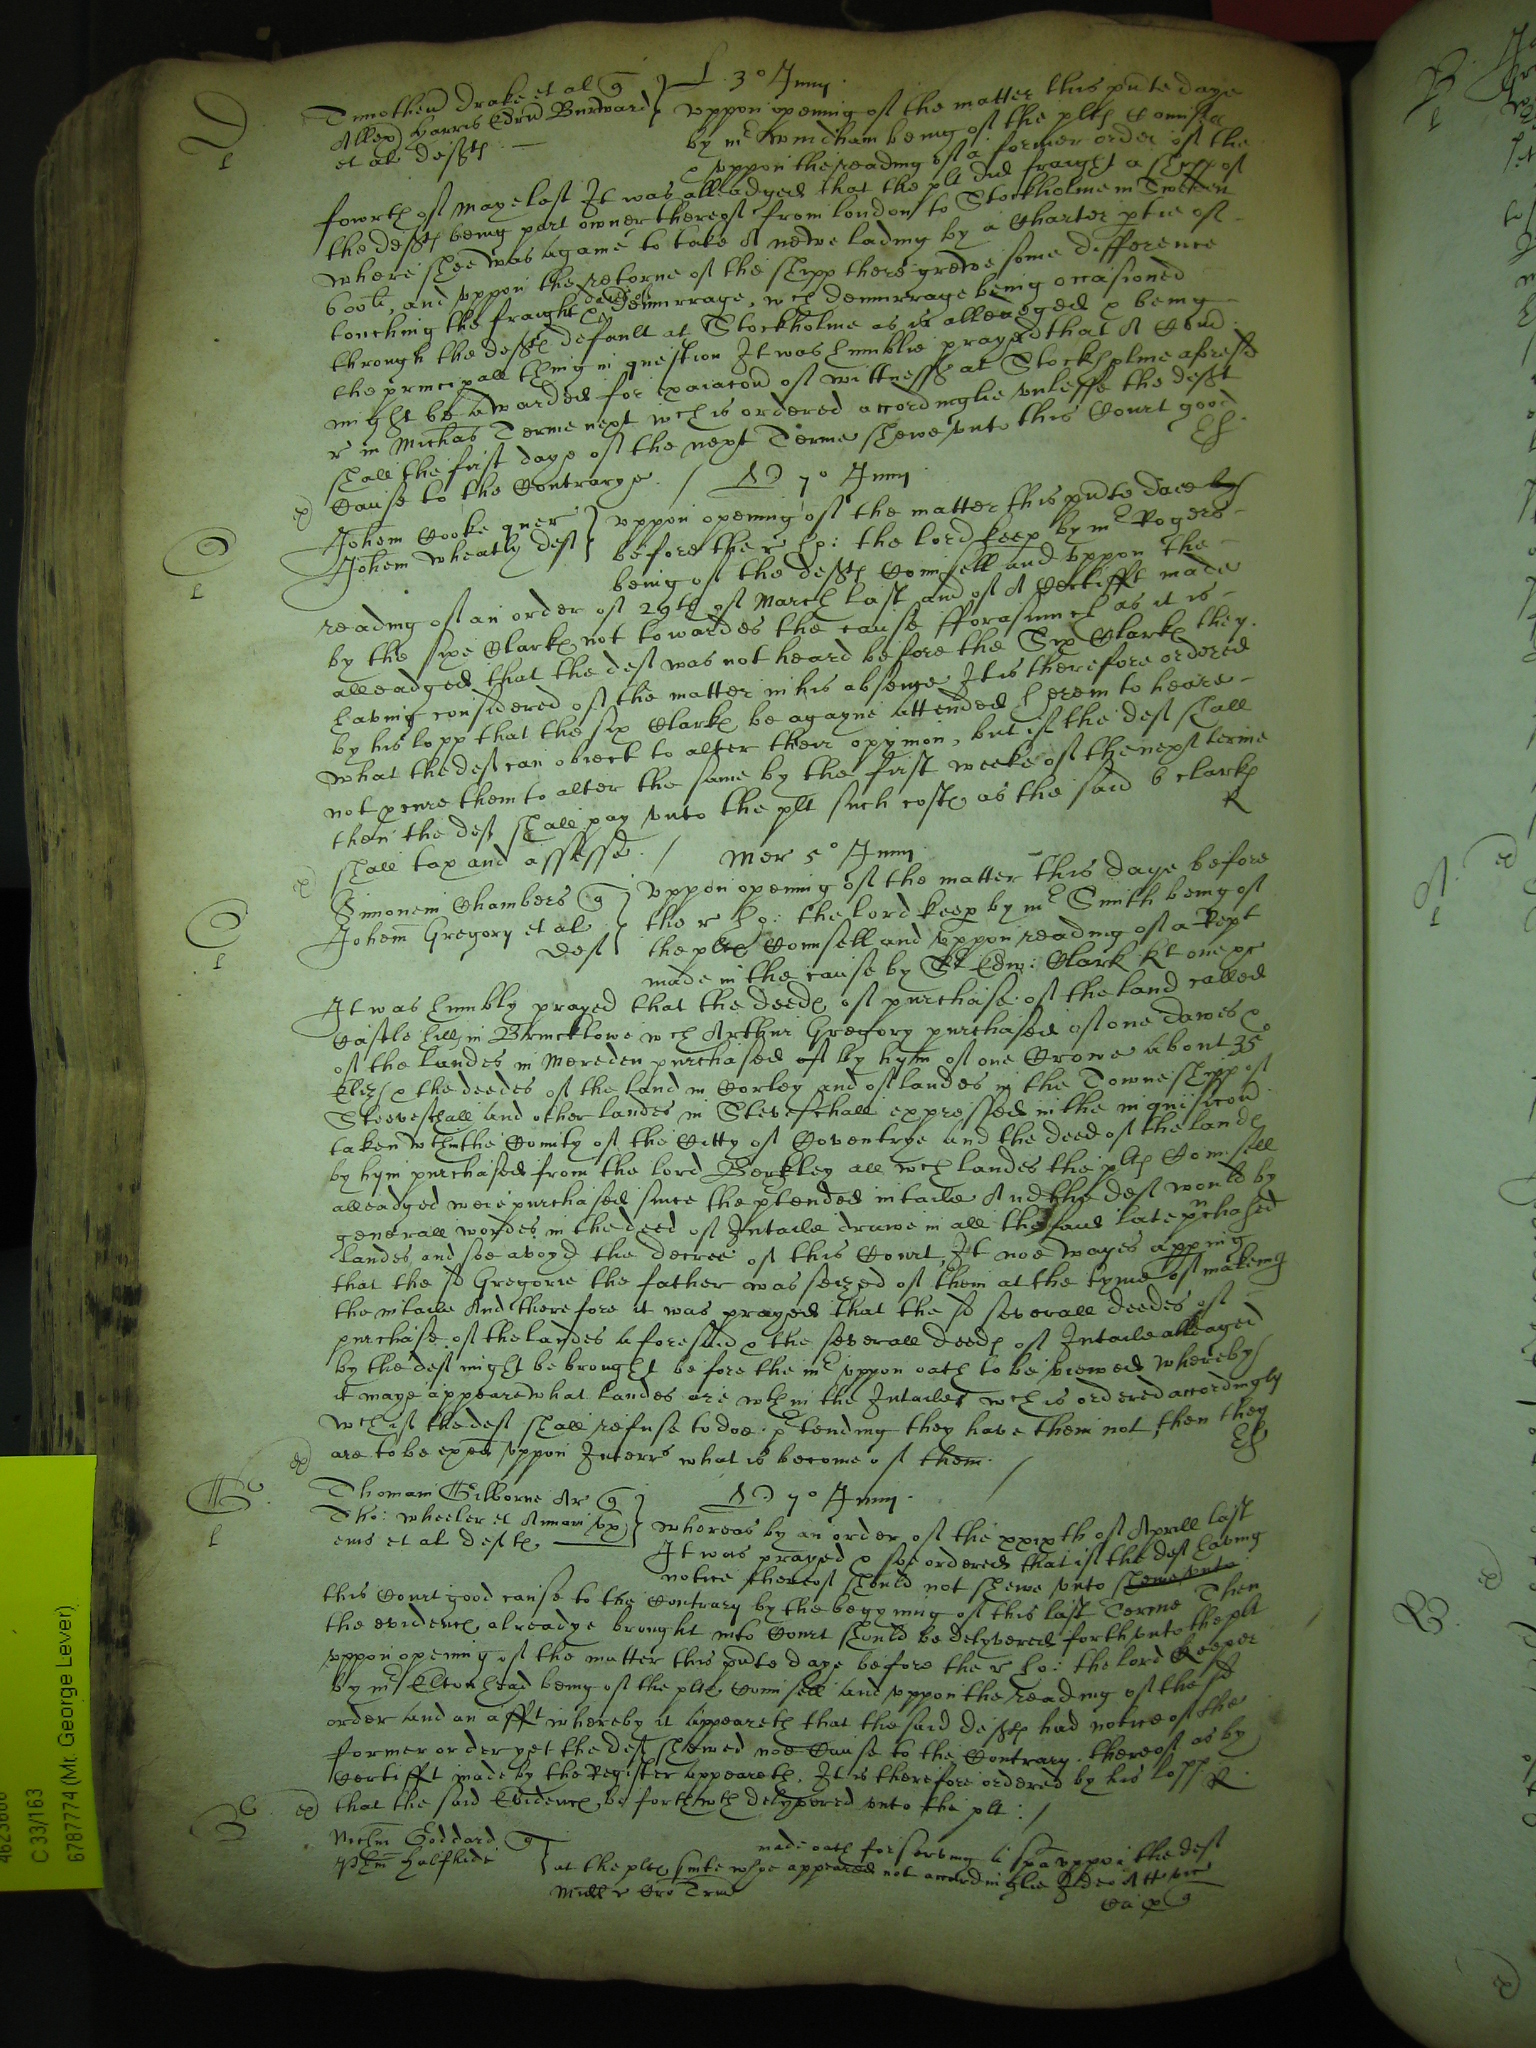 L 3° Junij
D Timotheu Drake et al q
Allexr Harris Edru Burward
et al defts
uppon opening of the matter this pnte daye
by mr windham being of the plts Counsell
& uppon the reading of a former order of the
fowrth of Maye last It was alleadged that the plt did fraight a shipp of
the defts being part owner thereof from london to Stockholme in Sweden
where shee was againe to take A newe lading by a Charter ptie of
600li, and uppon the retorne of the shipp there grewe some difference
touching the fraight & dayes of demurrage, wch demurrage being occasioned
through the defts default at Stockholme as is alleadged & being
the principall thing in question It was humblie prayed that A Comd
might be awarded for exaiacon of wittnesses at Stockholme aforesd
r in Michas Terme next wch is ordered accordinglie unlesse the deft
shall the first daye of the next Terme shewe unto this Court good
Cause to the Contrarye. /
ex
C Johem Cooke quer
Johem Wheatly deft
7° Junij
uppon opening of the matter this pnte daie
before the r ho: the lord keep by mr Rogers
being of the defts Counsell and uppon the
reading of an order of 29th of March last and of A Certifft made
by the sixe Clarks not towardes the cause fforasmuch as it is
alleadged that the deft was not heard before the Six Clarks they
having considered of the matter in his absence It is therefore ordered
by his lopp that the six Clarks be agayne attended herein to heare
what the deft can obiect to alter their opynion, but if the deft shall
not pcure them to alter the same by the first weeke of the next terme
then the deft shall pay unto the plt such costs as the said 6 clarks
shall tax and assesse. /
R
ex
Mer 5° Junij
C Simonem Chambers q
Johem Gregory et al
deft
uppon opening of the matter this daye before
the r ho: the lord keep by mr Smith being of
the plts Counsell and uppon reading of a Rept
made in the cause by Sr Edw: Clark kt one &c
It was humbly prayed that the deeds of purchase of the land called
Castle hills in Brincklowe wch Arthur Gregory purchased of one dawes &
of the landes in Mereden purchased of by hym of one Crowe about 35°
Eliz & the deedes of the land in Corley and of landes in the Towneshipp of
Steevechall and other landes in Stevischall expressed in the inquisicon
taken wthin the County of the Citty of Coventrye and the deed of the lands
by hym purchased from the lord Berkley all wch landes the plts Counsell
alleadged were purchased since the ptended intaile And the deft would by
generall wordes in the deed of Intaile drawe in all the said late purchased
landes and soe avoyd the decree of this Court, It noe wayes apping
that the sd Gregorie the father was seized of them at the tyme of makeing
the intaile And therefore it was prayed that the sd severall deedes of
purchase of the landes aforesaid & the severall deeds of Intaile alleaged
by the deft might be brought before the mr uppon oath to be viewed whereby
it maye appeare what landes are wthin the Intailes wch is ordered accordingly
wch if the deft shall refuse to doe ptending they have them not, then they
are to be exped uppon Interrs what is become of them. /
ex
G Thomam Gilborne Ar q
Tho: Wheeler et Annam ux
eius et al defts
7° Junij
whereas by an order of the xxixth of Aprill last
It was prayed & soe ordered that if the deft having
notice thereof should not shewe unto shewe unto
this Court good cause to the Contrary by the begyning of this last Terme Then
the evidencs alreadye brought into Court should be delyvered forth unto the plt
uppon opening of the matter this pnte daye before the r ho: the lord Keeper
by mr Eltonhead being of the plts Counsell and uppon the reading of the sd
order and an afft whereby it appeareth that the said defts had notice of the
former order yet the deft shewed noe Cause to the Contrary thereof as by
Certifft made by the Register appeareth. It is therefore ordered by his lopp
that the said Evidencs be forthwth delyvered unto the plt: /
R
ex
Goddard q
halfhide
made oath for serving a spa uppon the deft
at the plts suite whoe appeared not accordinglie Ideo Att
C 33/163
6787774 (Mr. George Lever)